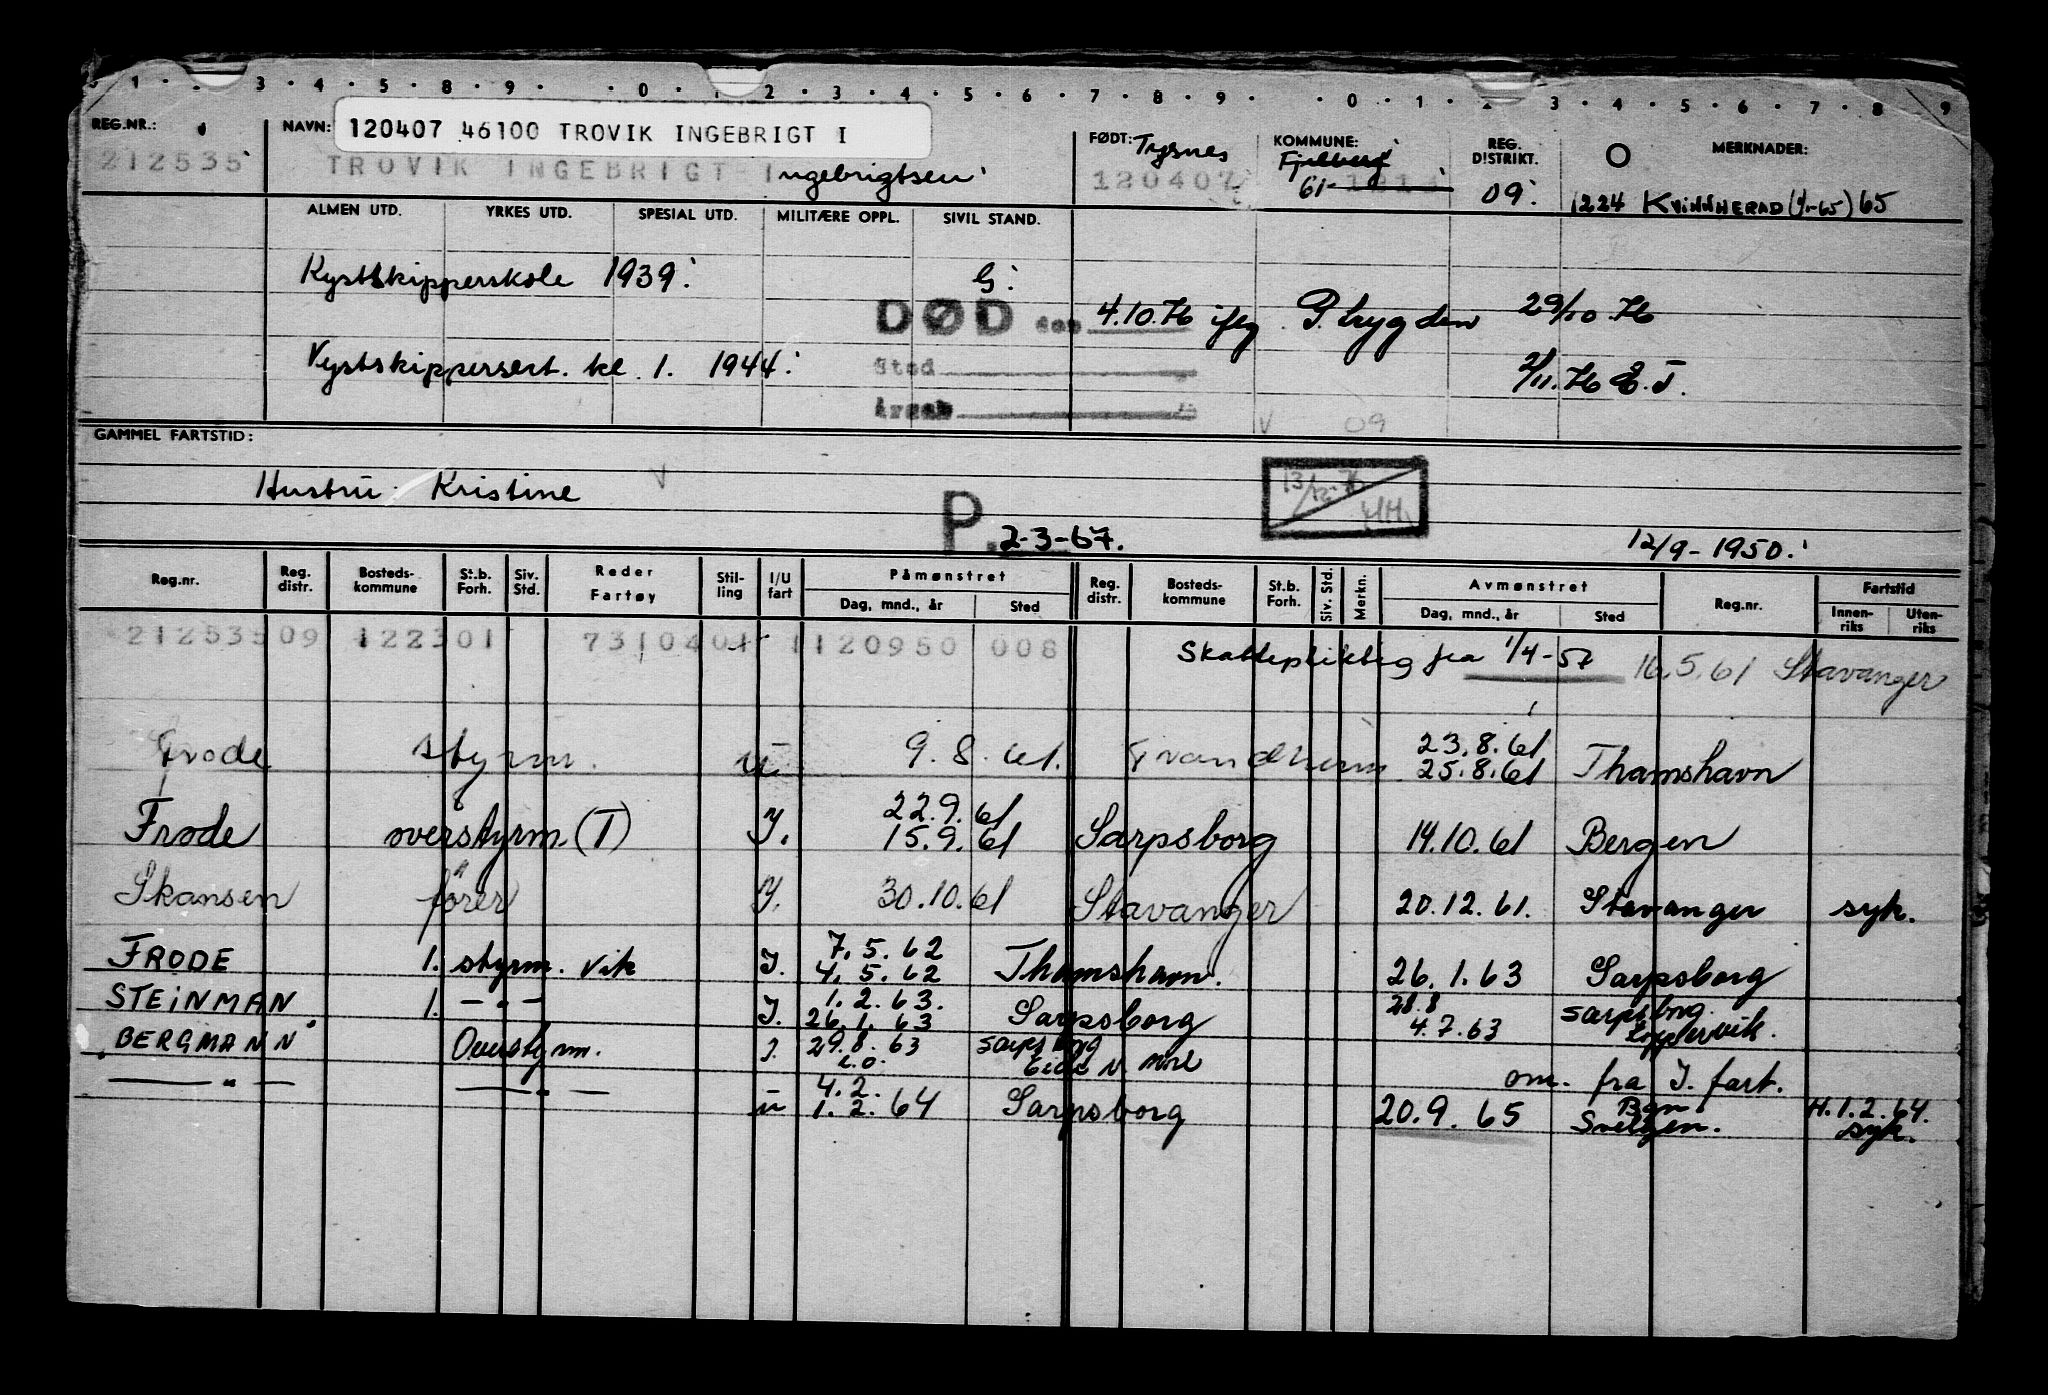 1 · 3 · 4 · 5 · 8 · 9 · · 0 · 1 2 · 3 · 4 · 5 · 6 · 7 · 8 · 9 · · 0 · 1 · 2 3 · 4 · 5 · 6 · 7 · 8 9
REG.NR.: NAVN: 120407 46100 TROVIK INGEBRIGT I FØDT: Tysnes KOMMUNE: Fjelberg REG. DISTRIKT. O MERKNADER:
212535 TROVIK INGEBRIGT Ingebrigtsen 120407 61- 1214 09 1224 KVINNHERAD (1/1-65) 65
ALMEN UTD. YRKES UTD. SPESIAL UTD. MILITÆRE OPPL. SIVIL STAND.
Kystskipperskole 1939 G
DØD den 4.10.76 iflg P. trygden 29/10.76
Kystskippersert. kl. 1. 1944 Sted 2/11.76 E.T.
Årsak V 09
GAMMEL FARTSTID:
Hustru: Kristine V 13/12-76
P. 2-3-67. 12/9-1950.
Reg.nr. Reg. distr. Bosteds-kommune St.b. Forh. Siv. Std. Reder Fartøy Stil-ling I/U fart Påmønstret Reg. distr. Bosteds-kommune St.b. Forh. Siv. Std. Merkn. Avmønstret Reg.nr. Fartstid
Dag, mnd., år Sted Dag, mnd., år Sted Innen-riks Uten-riks
21253509 122301 7310401 1120950 008 Skattepliktig fra 1/4-57 16.5.61 Stavanger
Frode styrm. u. 9.8.61. Trondheim 23.8.61 25.8.61 Thamshavn
Frode overstyrm. (T) I. 22.9.61 15.9.61 Sarpsborg 14.10.61 Bergen
Skansen fører I. 30.10.61 Stavanger 20.12.61. Stavanger syk.
FRODE 1. styrm. vik I. 7.5.62 4.5.62 Thamshavn. 26.1.63 Sarpsborg
STEINMAN 1. — " — I. 1.2.63. 26.1.63 Sarpsborg 28.8 4.7.63 Sarpsborg.
BERGMANN Overstyrm. I. 29.8.63 Sarpsborg om. fra I. fart.
— " — — " — u 4.2. 1.2.64 Sarpsborg 20.9.65 Bgn. Svelgen. H.1.2.64. syk.